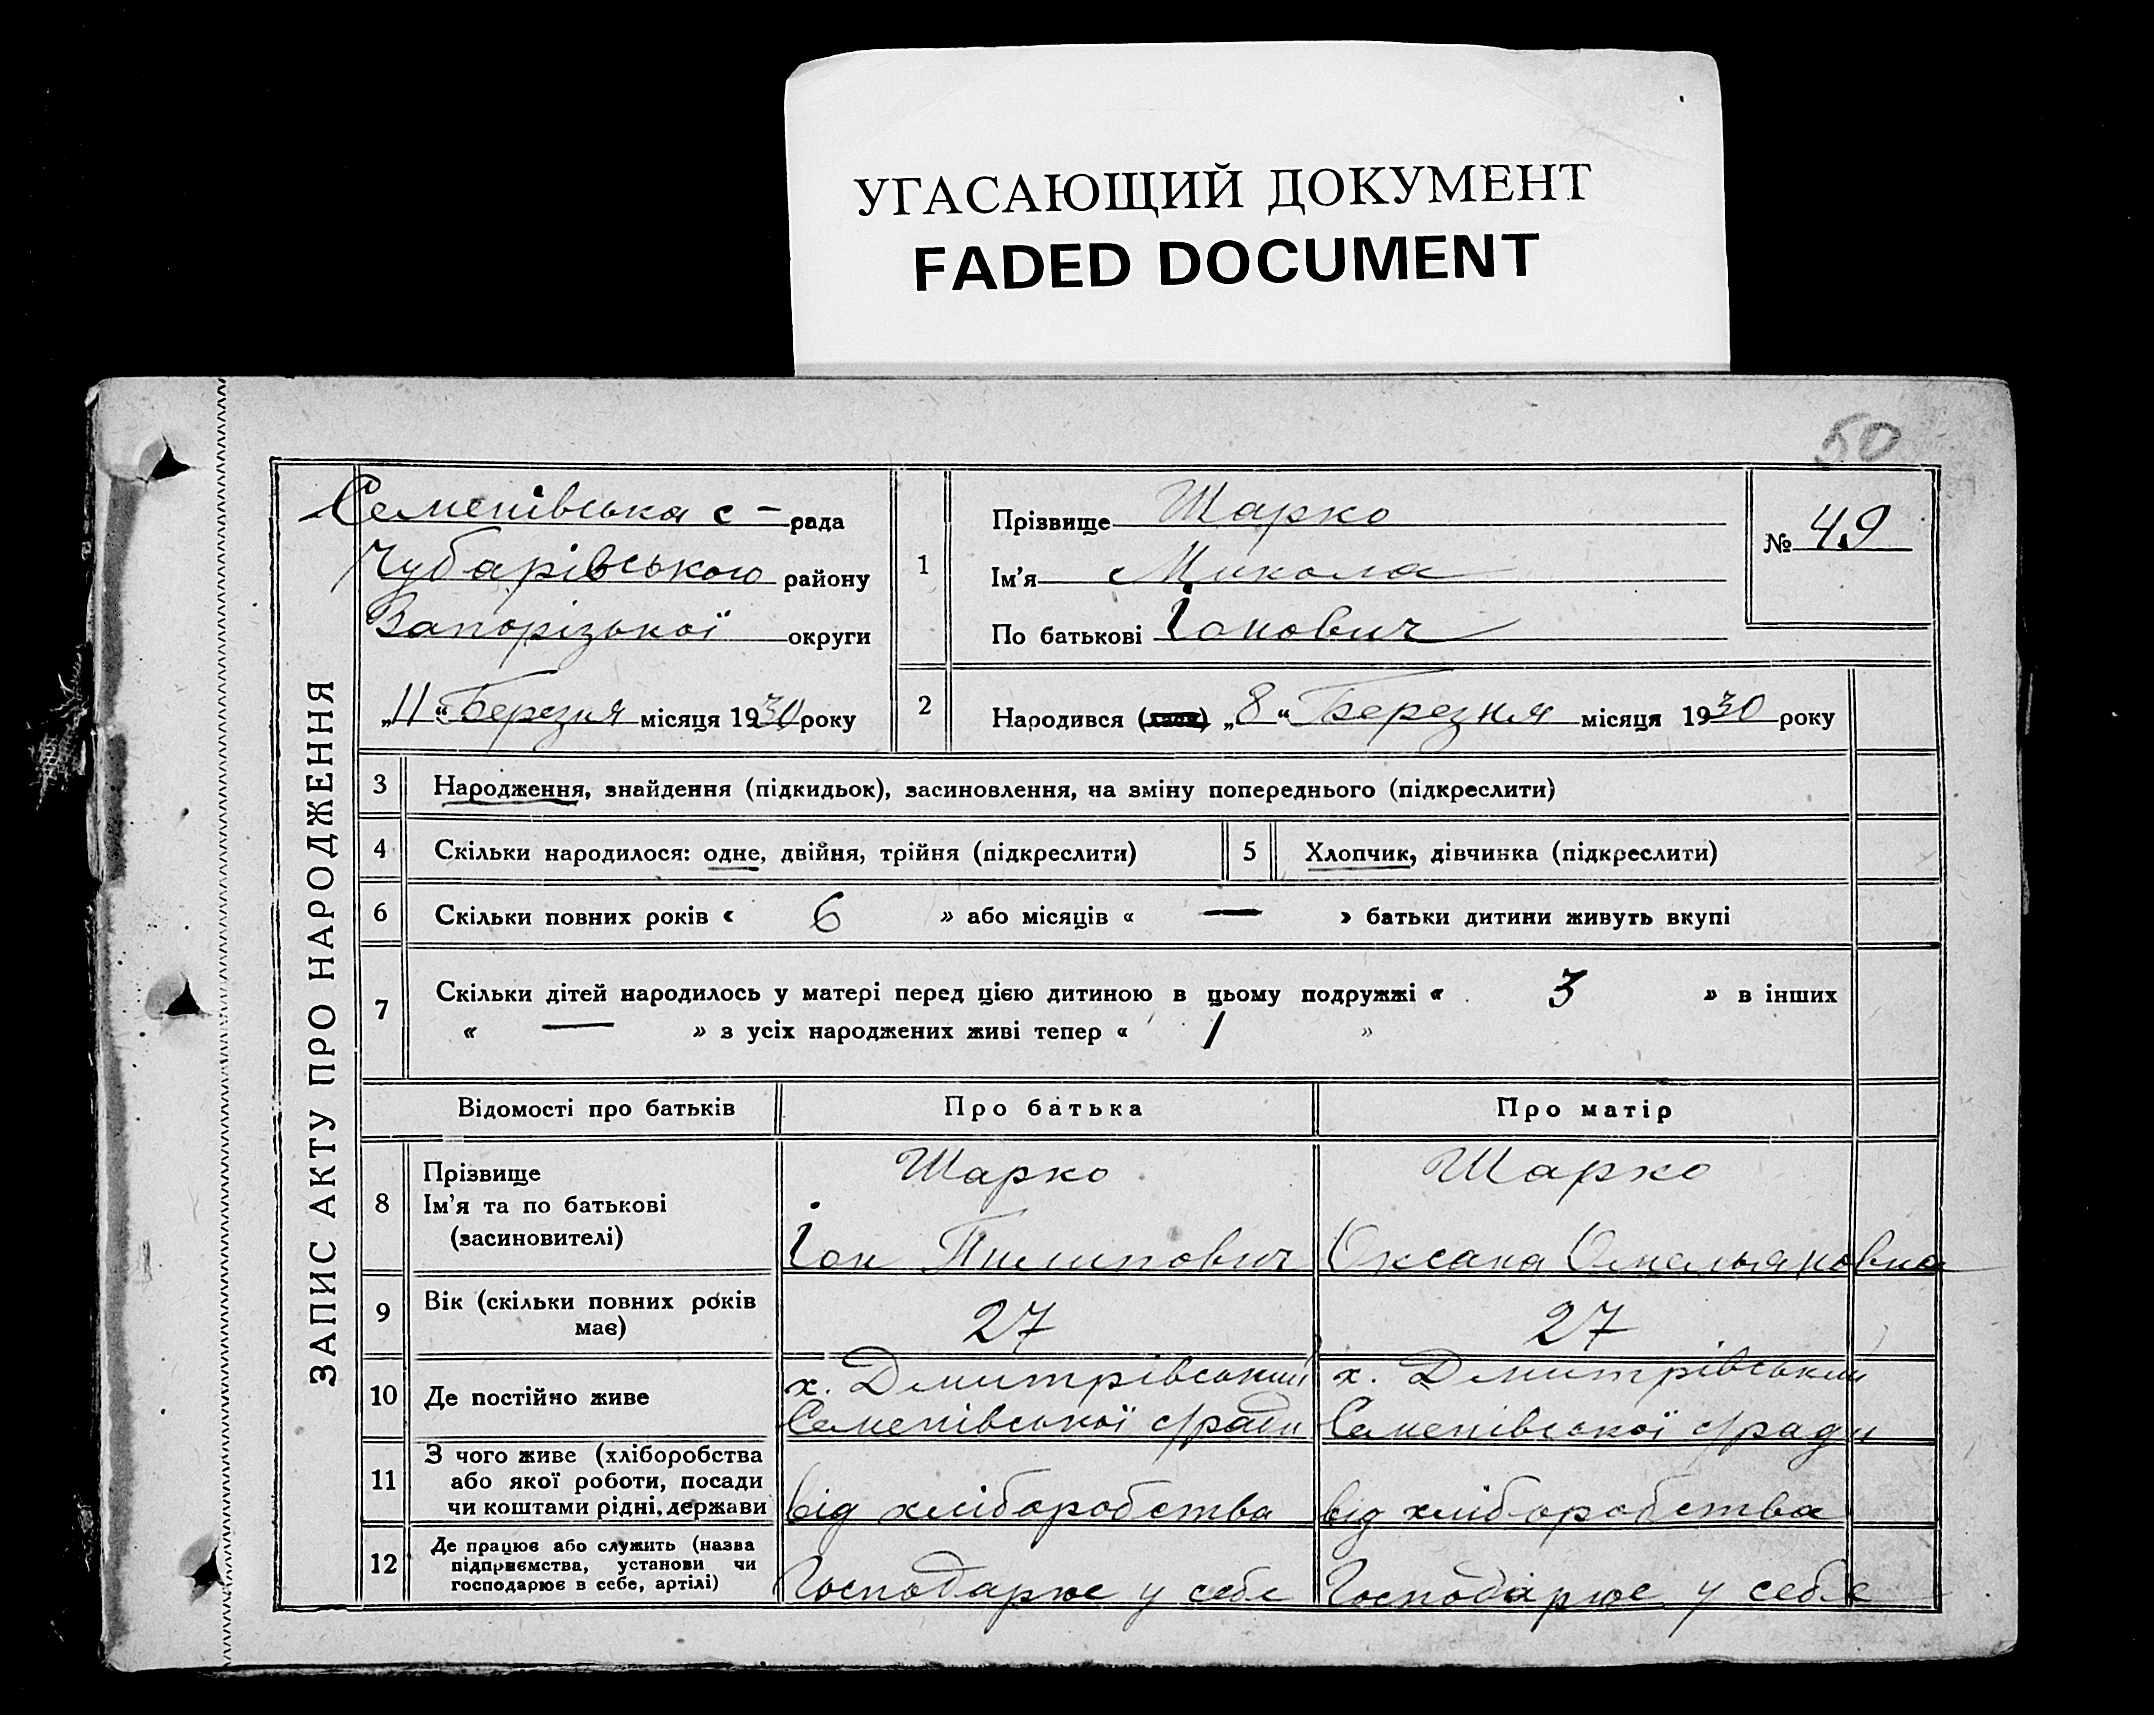 УГАСАЮЩИЙ ДОКУМЕНТ
FADED DOCUMENT
50
ЗАПИС АКТУ ПРО НАРОДЖЕННЯ
Семенівська с – рада
Чубарівського району
Запорізької округи
„11“ Березня місяця 1930 року
1
Прізвище Шарко
Ім’я Микола
По батькові Іонович
№ 49
2 Народився (лася) „8“ Березня місяця 1930 року
3 Народження, знайдення (підкидьок), засиновлення, на зміну попереднього (підкреслити)
4 Скільки народилося: одне, двійня, трійня (підкреслити) 5 Хлопчик, дівчинка (підкреслити)
6 Скільки повних років « 6 » або місяців « — » батьки дитини живуть вкупі
7 Скільки дітей народилось у матері перед цією дитиною в цьому подружжі « 3 » в інших
« — » з усіх народжених живі тепер « 1 »
Відомості про батьків Про батька Про матір
8 Прізвище Шарко Шарко
Ім’я та по батькові
(засиновителі) Іон Пилипович Оксана Омельяновна
9 Вік (скільки повних років
має) 27 27
10 Де постійно живе х. Дмитрівський х. Дмитрівський
Семенівської с/ради Семенівської с/ради
11 З чого живе (хліборобства
або якої роботи, посади
чи коштами рідні, держави від хліборобства від хліборобства
12 Де працює або служить (назва
підприємства, установи чи
господарює в себе, артілі) Господарює у себе Господарює у себе